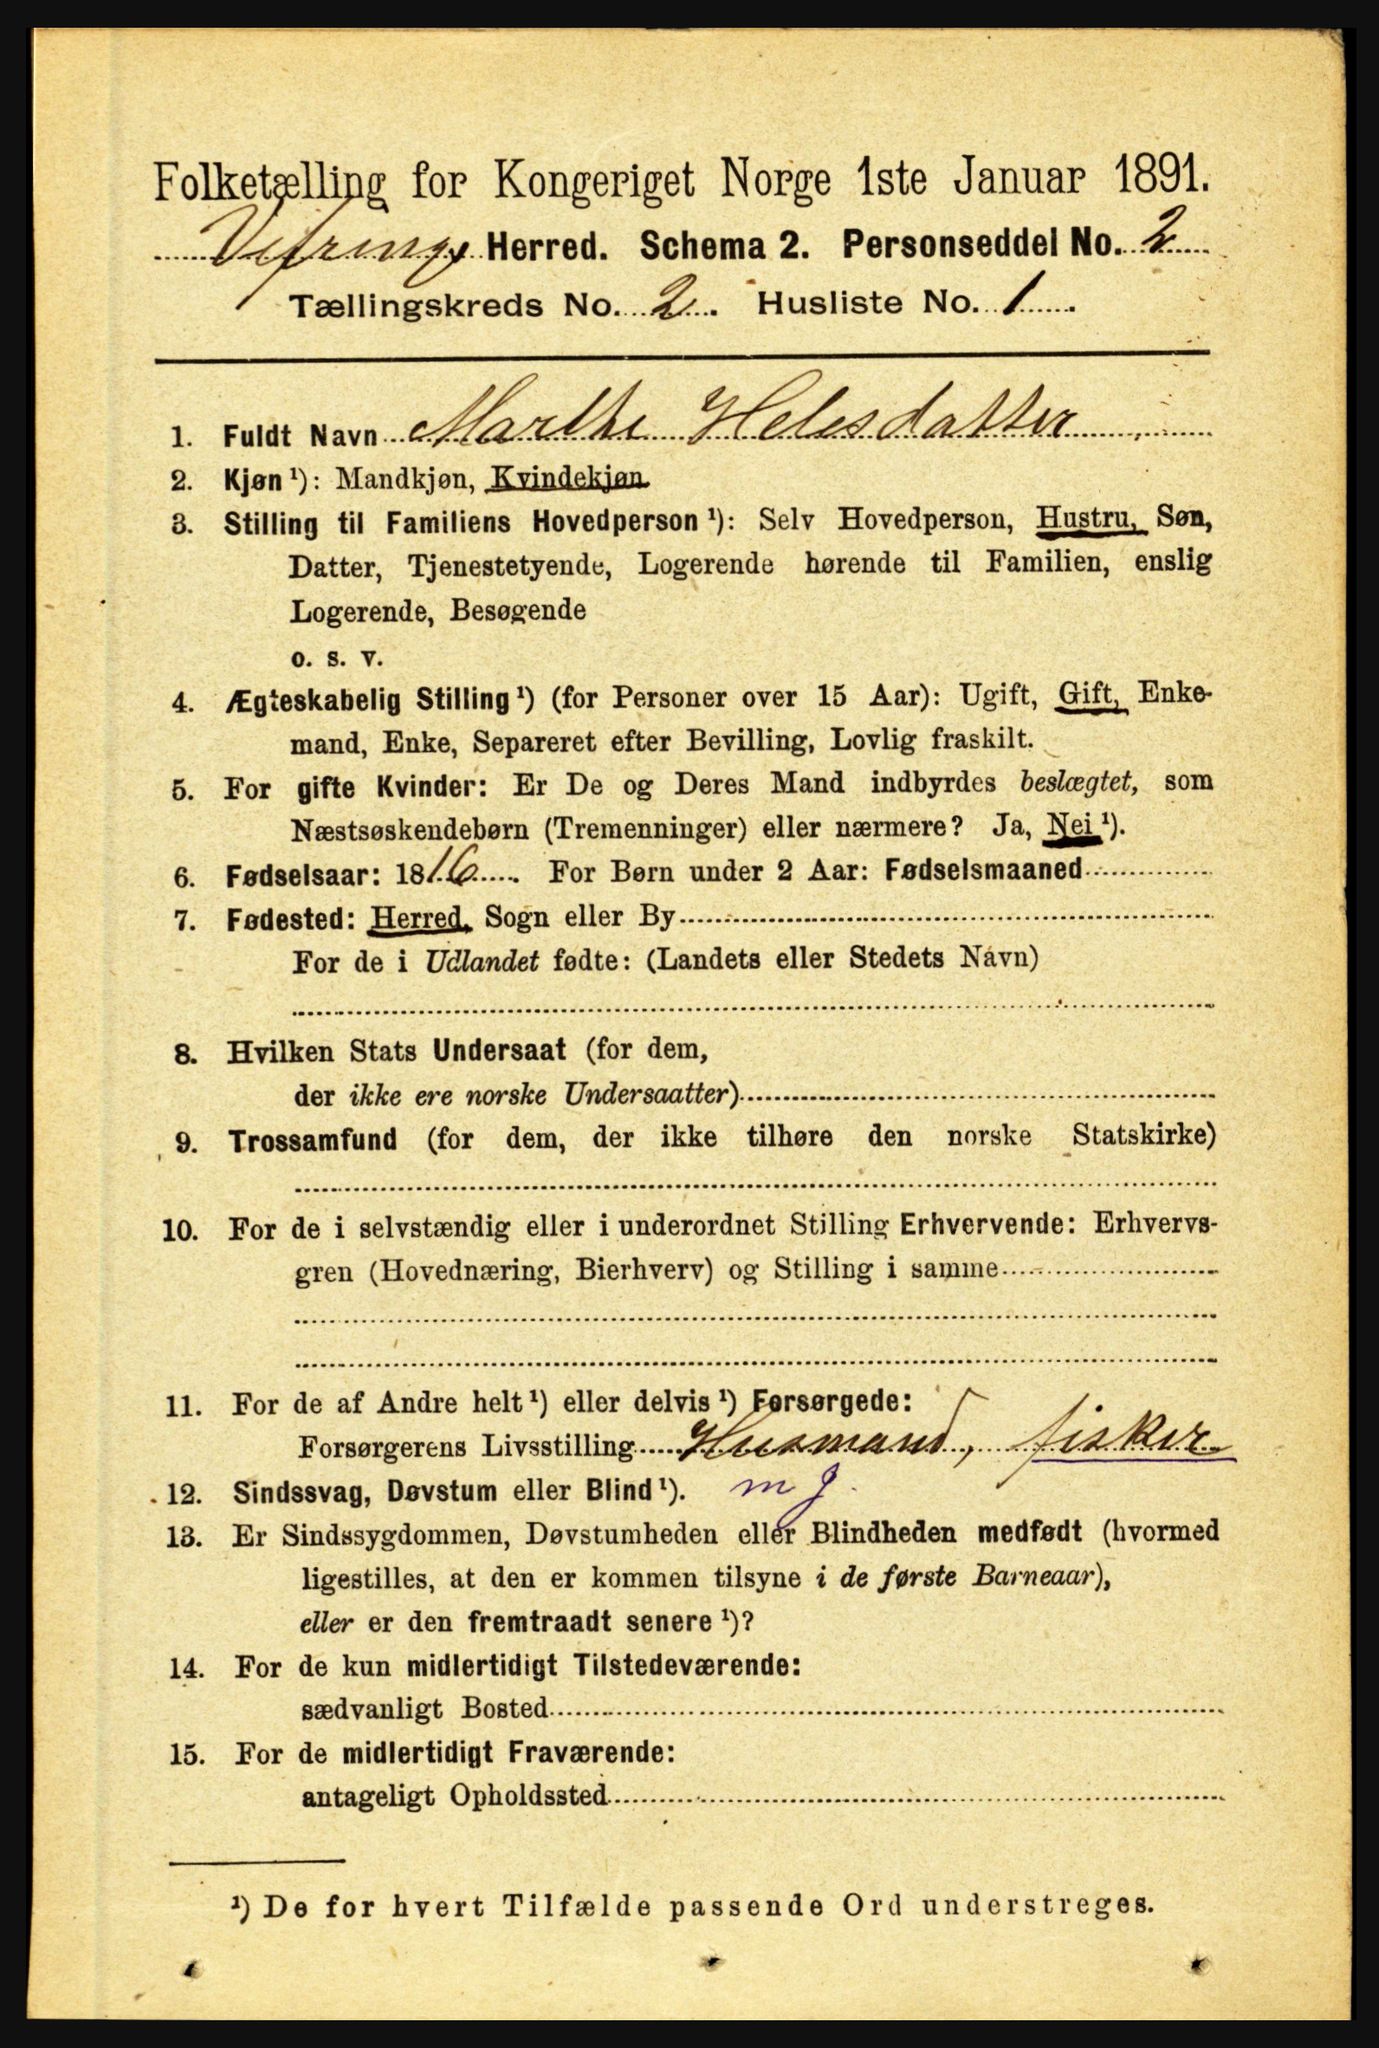 Folketælling for Kongeriget Norge 1ste Januar 1891.
Vefring Herred. Schema 2. Personseddel No. 2
Tællingskreds No. 2. Husliste No. 1
1. Fuldt Navn Marthe Helesdatter
2. Kjøn ¹): Mandkjøn, Kvindekjøn
3. Stilling til Familiens Hovedperson ¹): Selv Hovedperson, Hustru, Søn,
Datter, Tjenestetyende, Logerende hørende til Familien, enslig
Logerende, Besøgende
o. s. v.
4. Ægteskabelig Stilling ¹) (for Personer over 15 Aar): Ugift, Gift, Enke-
mand, Enke, Separeret efter Bevilling, Lovlig fraskilt.
5. For gifte Kvinder: Er De og Deres Mand indbyrdes beslægtet, som
Næstsøskendebørn (Tremenninger) eller nærmere? Ja, Nei ¹).
6. Fødselsaar: 1816. For Børn under 2 Aar: Fødselsmaaned
7. Fødested: Herred, Sogn eller By
For de i Udlandet fødte: (Landets eller Stedets Navn)
8. Hvilken Stats Undersaat (for dem,
der ikke ere norske Undersaatter)
9. Trossamfund (for dem, der ikke tilhøre den norske Statskirke)
10. For de i selvstændig eller i underordnet Stilling Erhvervende: Erhvervs-
gren (Hovednæring, Bierhverv) og Stilling i samme
11. For de af Andre helt ¹) eller delvis ¹) Forsørgede:
Forsørgerens Livsstilling Husmand, fisker
12. Sindssvag, Døvstum eller Blind ¹). m g.
13. Er Sindssygdommen, Døvstumheden eller Blindheden medfødt (hvormed
ligestilles, at den er kommen tilsyne i de første Barneaar),
eller er den fremtraadt senere ¹)?
14. For de kun midlertidigt Tilstedeværende:
sædvanligt Bosted
15. For de midlertidigt Fraværende:
antageligt Opholdssted
¹) De for hvert Tilfælde passende Ord understreges.